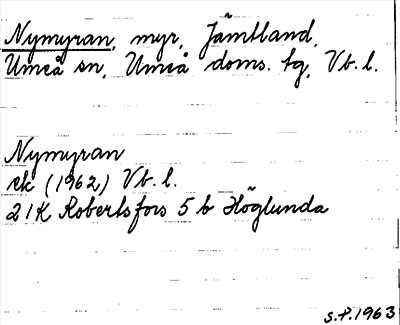 Nymyran, myr, Jämtland,
Umeå sn, Umeå doms. tg, Vb. l.
Nymyran
ek (1962) Vb. l.
21K Robertsfors 5 b Höglunda
S.P. 1963